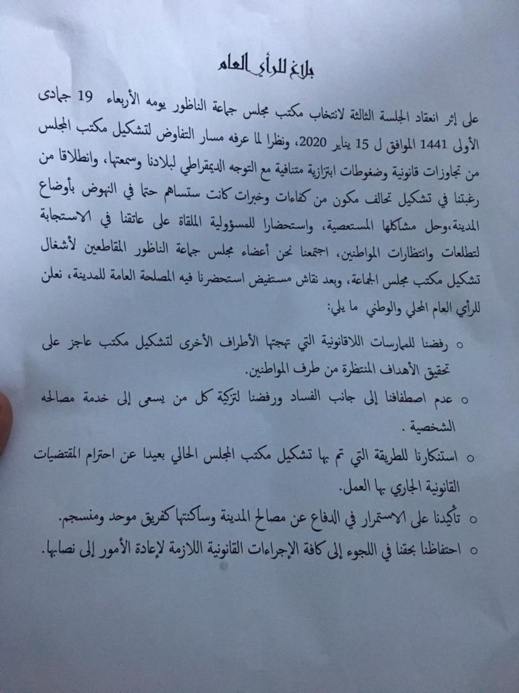 بلاغ للرأي العام
على إثر انعقاد الجلسة الثالثة لانتخاب مكتب مجلس جماعة الناظور يومه الأربعاء 19 جمادى
الأولى 1441 الموافق ل 15 يناير 2020، ونظرا لما عرفه مسار التفاوض لتشكيل مكتب المجلس
من تجاوزات قانونية وضغوطات ابتزازية متنافية مع التوجه الديمقراطي لبلادنا وسمعتها، وانطلاقا من
رغبتنا في تشكيل تحالف مكون من كفاءات وخبرات كانت ستساهم حتما في النهوض بأوضاع
المدينة،وحل مشاكلها المستعصية، واستحضارا للمسؤولية الملقاة على عاتقنا في الاستجابة
لتطلعات وانتظارات المواطنين، اجتمعنا نحن أعضاء مجلس جماعة الناظور المقاطعين لأشغال
تشكيل مكتب مجلس الجماعة، وبعد نقاش مستفيض استحضرنا فيه المصلحة العامة للمدينة، نعلن
للرأي العام المحلي والوطني ما يلي:
○ رفضنا للممارسات اللاقانونية التي نهجتها الأطراف الأخرى لتشكيل مكتب عاجز على
تحقيق الأهداف المنتظرة من طرف المواطنين.
○ عدم اصطفافنا إلى جانب الفساد ورفضنا لتزكية كل من يسعى إلى خدمة مصالحه
الشخصية .
○ استنكارنا للطريقة التي تم بها تشكيل مكتب المجلس الحالي بعيدا عن احترام المقتضيات
القانونية الجاري بها العمل.
○ تأكيدنا على الاستمرار في الدفاع عن مصالح المدينة وساكنتها كفريق موحد ومنسجم.
○ احتفاظنا بحقنا في اللجوء إلى كافة الإجراءات القانونية اللازمة لإعادة الأمور إلى نصابها.